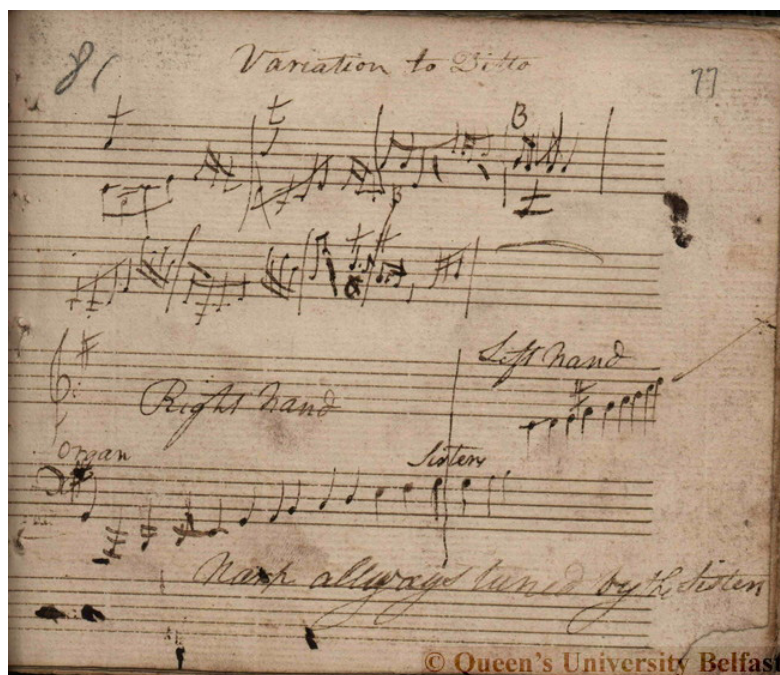 81 Variation to Ditto 77
B
B
Left hand
Right hand
Organ Sisters
Harp allways tuned by the Sisters
© Queen's University Belfast